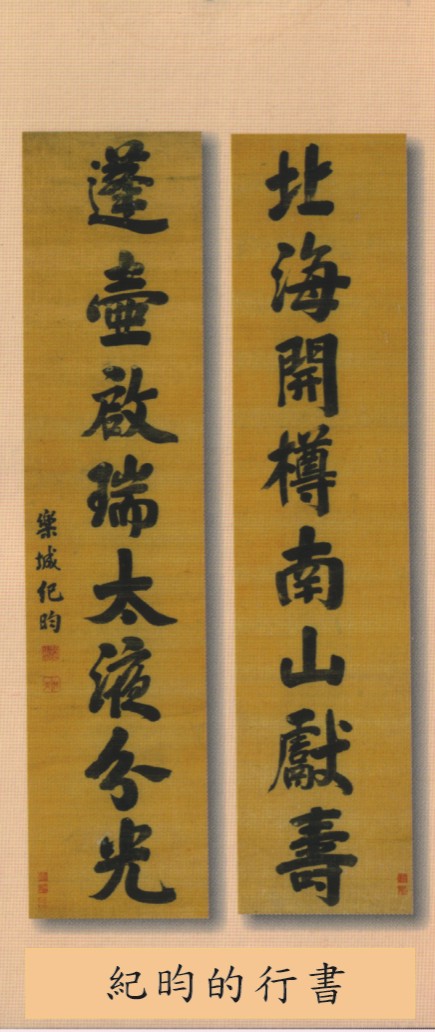 北海開樽南山獻壽
蓬壺啟瑞太液分光
樂城紀昀
紀昀的行書